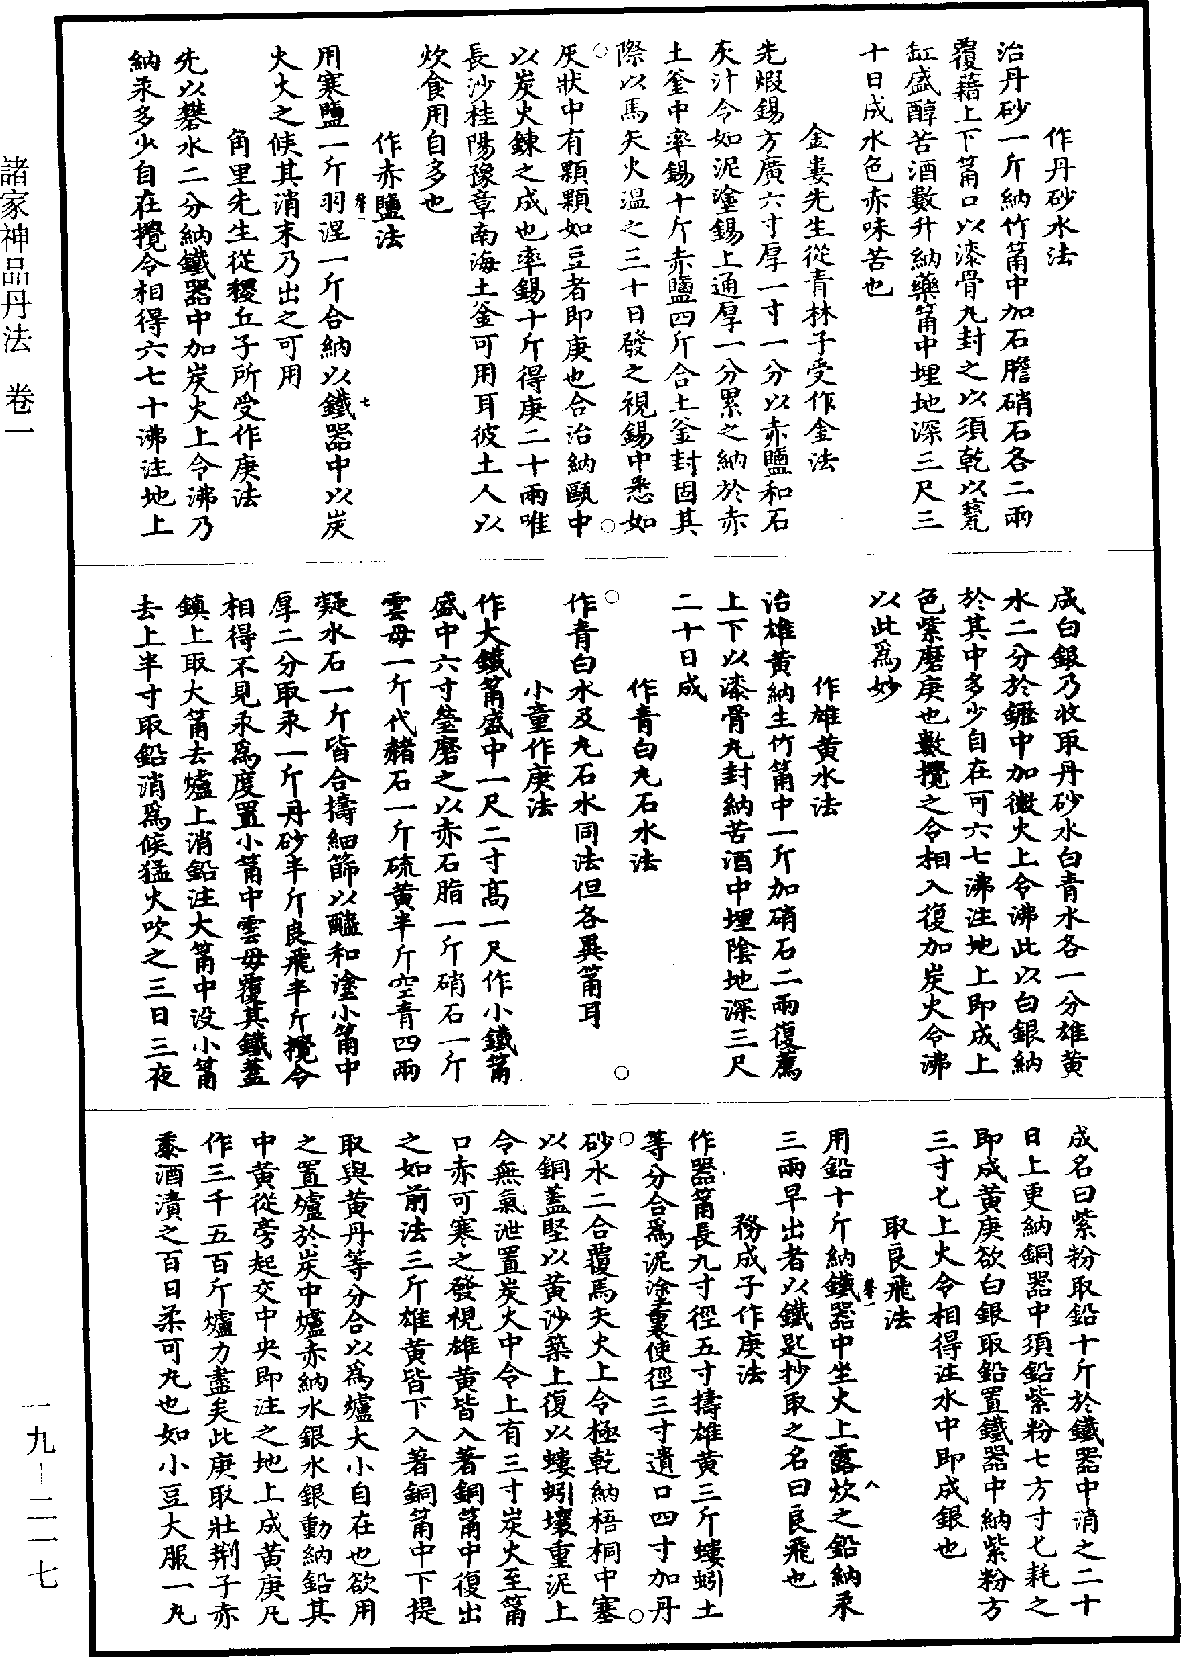 作丹砂水法
治丹砂一斤納竹筩中加石膽硝石各二兩
覆藉上下筩口以漆骨丸封之以須乾以瓮
缸盛醇苦酒數升納藥筩中埋地深三尺三
十日成水色赤味苦也
金婁先生從青林子受作金法
先煅錫方廣六寸厚一寸一分以赤鹽和石
灰汁令如泥塗錫上通厚一分累之納於赤
土釜中率錫十斤赤鹽四斤合土釜封固其
際以馬矢火温之三十日發之視錫中悉如
灰狀中有顆顆如豆者即庚也合治納甌中
以炭火鍊之成也率錫十斤得庚二十兩唯
長沙桂陽豫章南海土釜可用耳彼土人以
炊食用自多也
作赤鹽法
用寒鹽一斤羽涅一斤合納以鐵器中以炭
火火之候其消末乃出之可用
角里先生從稷丘子所受作庚法
先以礬水二分納鐵器中加炭火上令沸乃
納汞多少自在攪令相得六七十沸注地上
成白銀乃收取丹砂水白青水各一分雄黄
水二分於鑪中加微火上令沸此以白銀納
於其中多少自在可六七沸注地上即成上
色紫磨庚也數攪之令相入復加炭火令沸
以此爲妙
作雄黄水法
治雄黄納生竹筩中一斤加硝石二兩復薦
上下以漆骨丸封納苦酒中埋陰地深三尺
二十日成
作青白丸石水法
作青白水及丸石水同法但各異筩耳
小童作庚法
作大鐵筩盛中一尺二寸高一尺作小鐵筩
盛中六寸瑩磨之以赤石脂一斤硝石一斤
雲母一斤代赭石一斤硫黄半斤空青四兩
凝水石一斤皆合擣細篩以醯和塗小筩中
厚二分取汞一斤丹砂半斤良飛半斤攪令
相得不見汞爲度置小筩中雲母覆其鐵蓋
鎮上取大筩去爐上消鉛注大筩中没小筩
去上半寸取鉛消爲候猛火吹之三日三夜
成名曰紫粉取鉛十斤於鐵器中消之二十
日上更納銅器中須鉛紫粉七方寸匕耗之
即成黄庚欲白銀取鉛置鐵器中納紫粉方
三寸匕上火令相得注水中即成銀也
取良飛法
用鉛十斤納鐵器中坐火上露炊之鉛納汞
三兩早出者以鐵匙抄取之名曰良飛也
務成子作庚法
作器筩長九寸徑五寸擣雄黄三斤螻蚓土
等分合爲泥塗裏使徑三寸遺口四寸加丹
砂水二合覆馬矢火上令極乾納梧桐中塞
以銅蓋堅以黄沙築上復以螻蚓壤重泥上
令無氣泄置炭火中令上有三寸炭火至筩
口赤可寒之發視雄黄皆入著銅筩中復出
之如前法三斤雄黄皆下入著銅筩中下提
取與黄丹等分合以爲爐大小自在也欲用
之置爐於炭中爐赤納水銀水銀動納鉛其
中黄從旁起交中央即注之地上成黄庚凡
作三千五百斤爐力盡矣此庚取壯荆子赤
黍酒漬之百日柔可丸也如小豆大服一丸
諸家神品丹法　卷一
一九—二一七